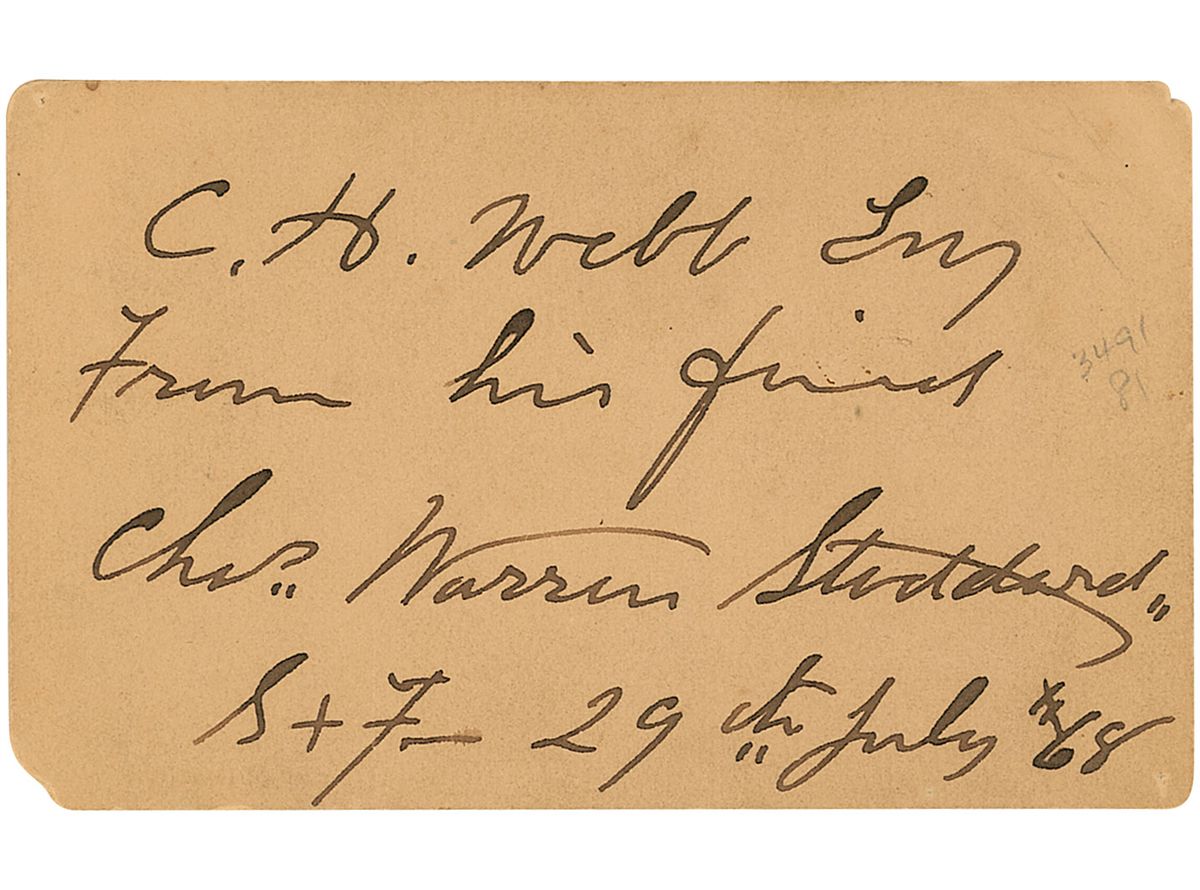 C. H. Webb Esq
From his friend
3491
81
Chas. Warren Stoddard
S + F — 29th July 68